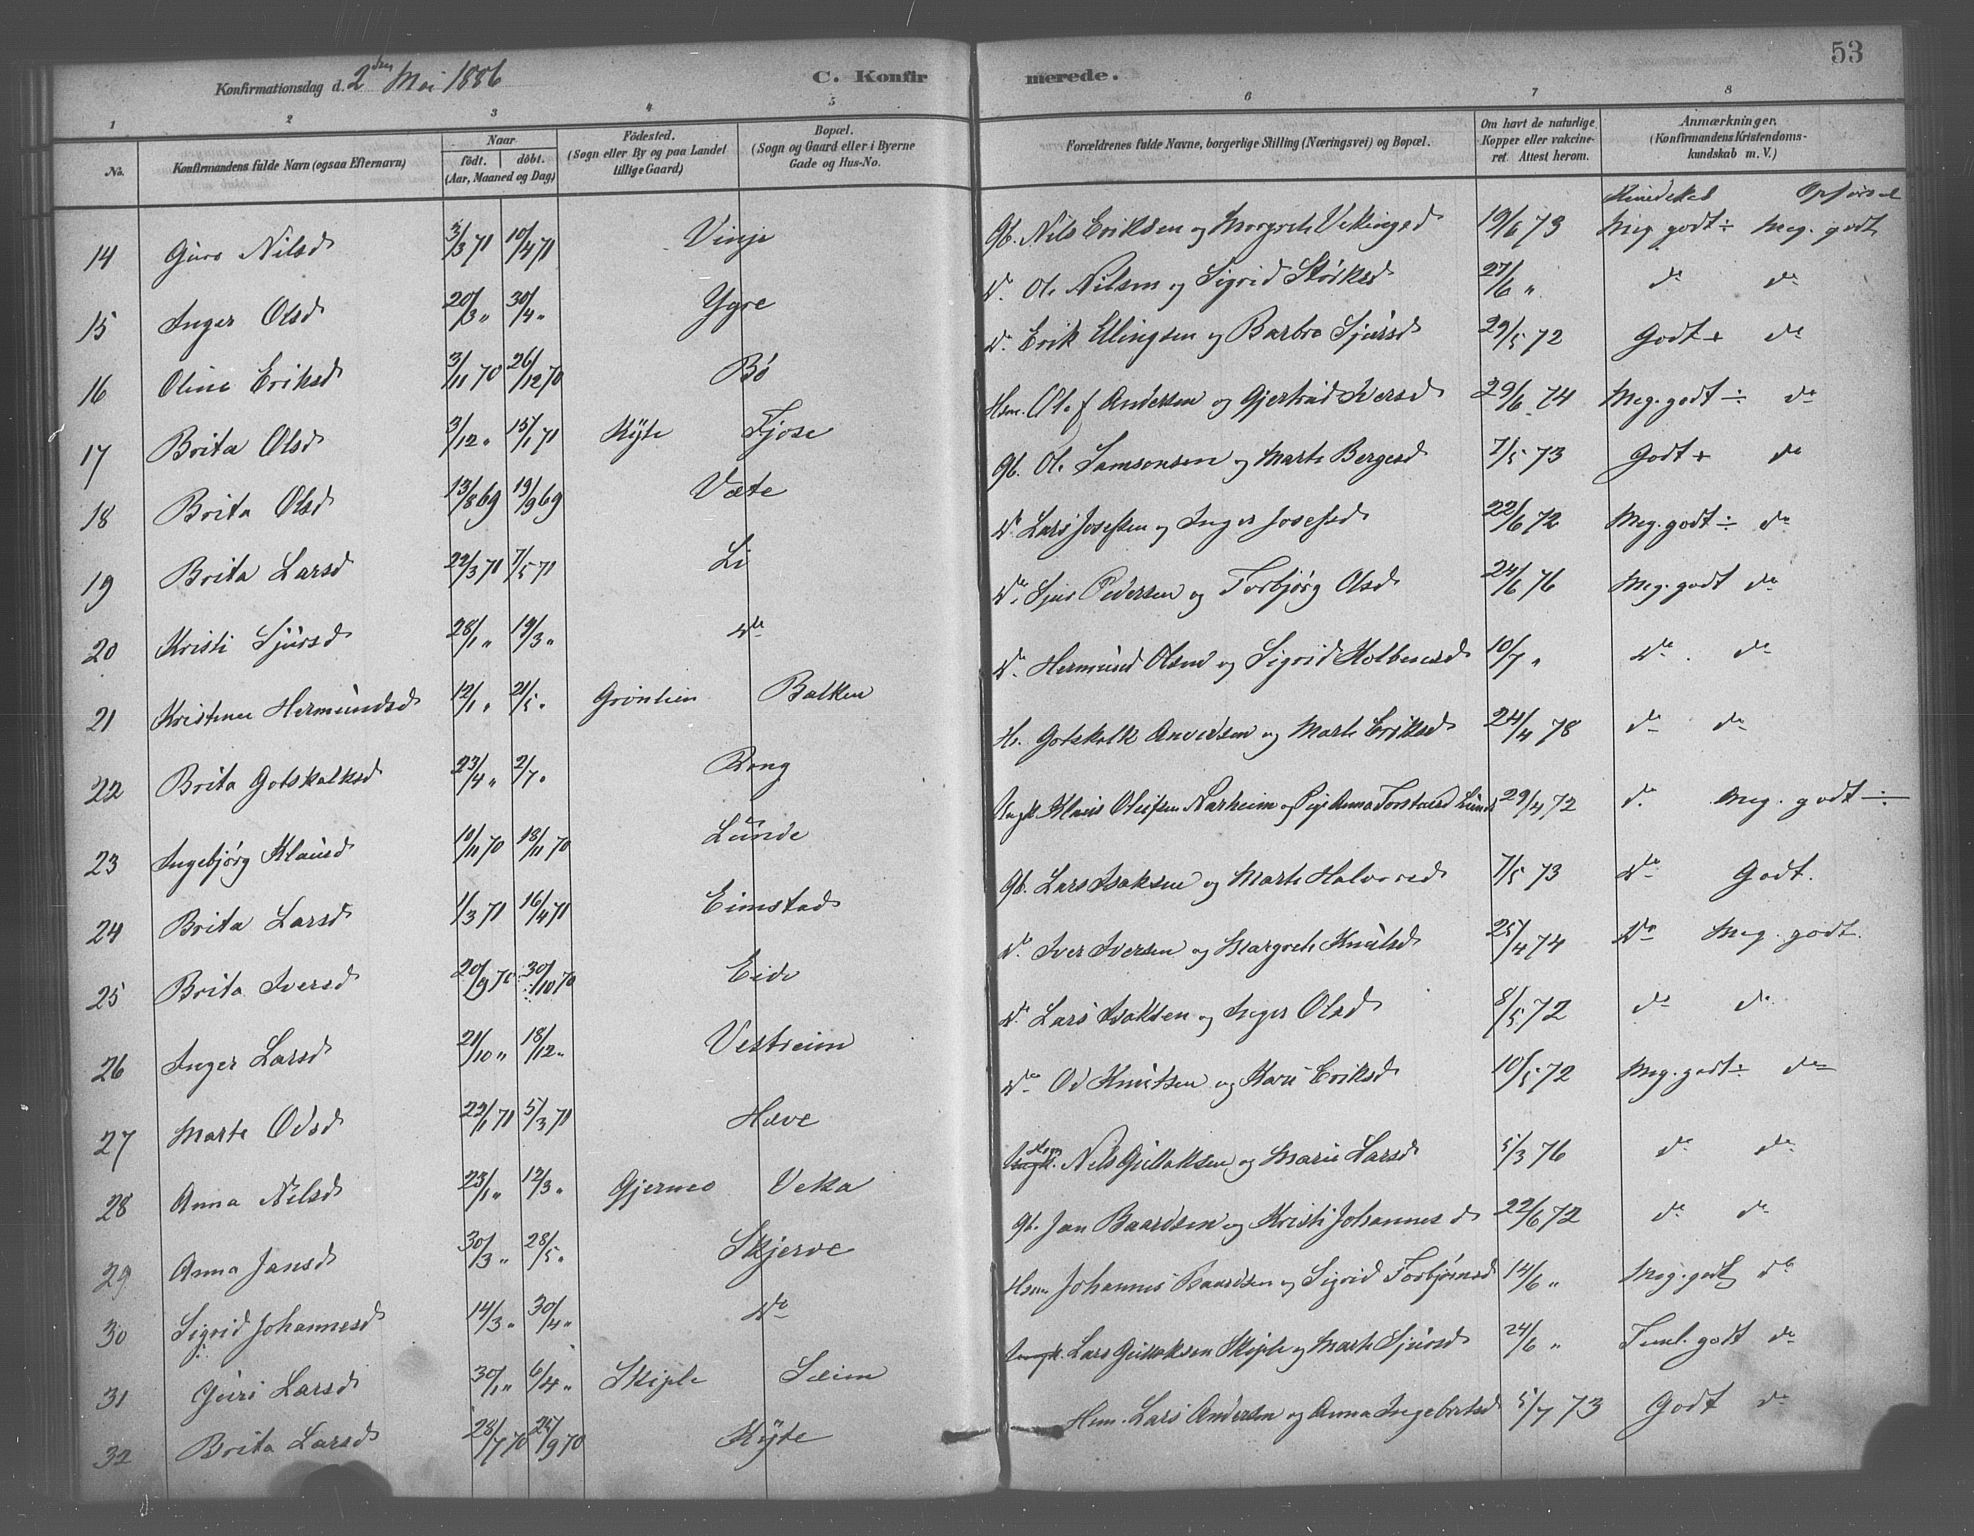 53
Konfirmationsdag d. 2den Mai 1886 C. Konfirmerede.
1 2 3 4 5 6 7 8
No. Konfirmandens fulde Navn (ogsaa Efternavn) Naar födt. döbt. (Aar, Maaned og Dag) Födested. (Sogn eller By og paa Landet tillige Gaard) Bopæl. (Sogn og Gaard eller i Byerne Gade og Hus-No. Forældrenes fulde Navne, borgerlige Stilling (Næringsvei) og Bopæl. Om havt de naturlige Kopper eller vakcineret. Attest herom. Anmærkninger. (Konfirmandens Kristendomskundskab m. V.)
Kundskab Opførsel
14 Guro Nilsd 3/3 71 10/4 71 Vinje Gb. Nils Eriksen og Margrete Vikingsd 19/6 73 Meg. godt ÷ Meg. godt
15 Inger Olsd 20/3 " 30/4 " Ygre do Ole Nilsen og Sigrid Størksd 27/6 " do do
16 Oline Eriksd 3/11 70 26/12 70 Bö do Erik Ellingsen og Barbro Sjursd 29/5 72 Godt + do
17 Brita Olsd 3/12 " 15/1 71 Kyte Fjose Hsm. Olof Andersen og Gjertrud Iversd 29/6 74 Meg. godt ÷ do
18 Brita Olsd 13/8 69 19/9 69 Væte Gb. Ole Samsonsen og Marte Bergesd 7/5 73 Godt + do
19 Brita Larsd 22/3 71 7/5 71 Li do Lars Josefsen og Inger Josefsd 22/6 72 Meg. godt ÷ do
20 Kristi Sjursd 28/1 " 19/3 " do do Sjur Pedersen og Torbjørg Olsd 24/6 76 Meg. godt do
21 Kristense Hermundsd 12/1 " 21/5 " Grönlien Balken do Hermund Olsen og Sigrid Kolbensd 10/7 " do do
22 Brita Gotskalksd 23/4 " 2/7 " Rong H. Gotskalk Anvedsen og Marte Eriksd 24/4 78 do do
23 Ingebjørg Klausd 10/11 70 18/11 70 Lunde Ungk. Klaus Oleifsen Narheim og Pige Anna Torstensd Lunde 29/4 72 do Meg. godt ÷
24 Brita Larsd 1/3 71 16/4 71 Eimstad Gb. Lars Isaksen og Marte Halvorsd 7/5 73 do Godt.
25 Brita Iversd 20/9 70 30/10 70 Eide do Iver Iversen og Margrete Knutsd 25/4 74 do Meg. godt.
26 Inger Larsd 21/10 " 18/12 " Vestreim do Lars Isaksen og Inger Olsd 8/5 72 do do
27 Marte Odsd 22/1 71 5/3 71 Hæve do Od Knutsen og Kari Eriksd 10/5 72 Meg. godt ÷ do
28 Anna Nilsd 23/1 " 12/3 " Gjerme Veka Hsm Ungk. Nils Gulleksen og Mari Larsd 5/3 76 do do
29 Anna Jansd 30/3 " 28/5 " Skjerve Gb. Jan Baardsen og Kristi Johannesd 22/6 72 do do
30 Sigrid Johannesd 14/3 " 30/4 " do Hsm. Johannes Baardsen og Sigrid Torbjørnsd 14/6 " Meg. godt do
31 Guri Larsd 30/1 " 6/4 " Skiple Seim Ungk. Lars Gulleksen Skiple og Marte Sjursd 24/6 " Teml. godt do
32 Brita Larsd 28/7 70 25/9 70 Kyte Hsm. Lars Andersen og Anna Ingebretsd 5/7 73 Godt do